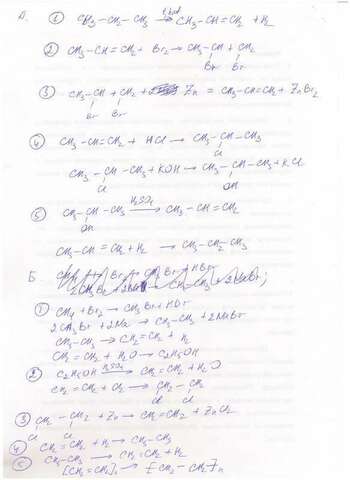 А.
① CH3-CH2-CH3 → CH3-CH=CH2 + H2
② CH3-CH=CH2 + Br2 → CH3-CH + CH2
Br Br
③ CH3-CH + CH2 + Zn = CH3-CH=CH2 + ZnBr2
Br Br
④ CH3-CH=CH2 + HCl → CH3-CH-CH3
Cl
CH3-CH-CH3 + KOH → CH3-CH-CH3 + KCl
Cl OH
⑤ CH3-CH-CH3 H2SO4→ CH3-CH=CH2
OH
CH3-CH=CH2 + H2 → CH3-CH2-CH3
Б.
① CH4 + Br2 → CH3Br + HBr
2CH3Br + 2Na → CH3-CH3 + 2NaBr
CH3-CH3 → CH2=CH2 + H2
CH2=CH2 + H2O → C2H5OH
② C2H5OH H2SO4→ CH2=CH2 + H2O
CH2=CH2 + Cl2 → CH2-CH2
Cl Cl
③ CH2-CH2 + Zn → CH2=CH2 + ZnCl2
Cl Cl
④ CH2=CH2 + H2 → CH3-CH3
⑤ CH3-CH3 → CH2=CH2 + H2